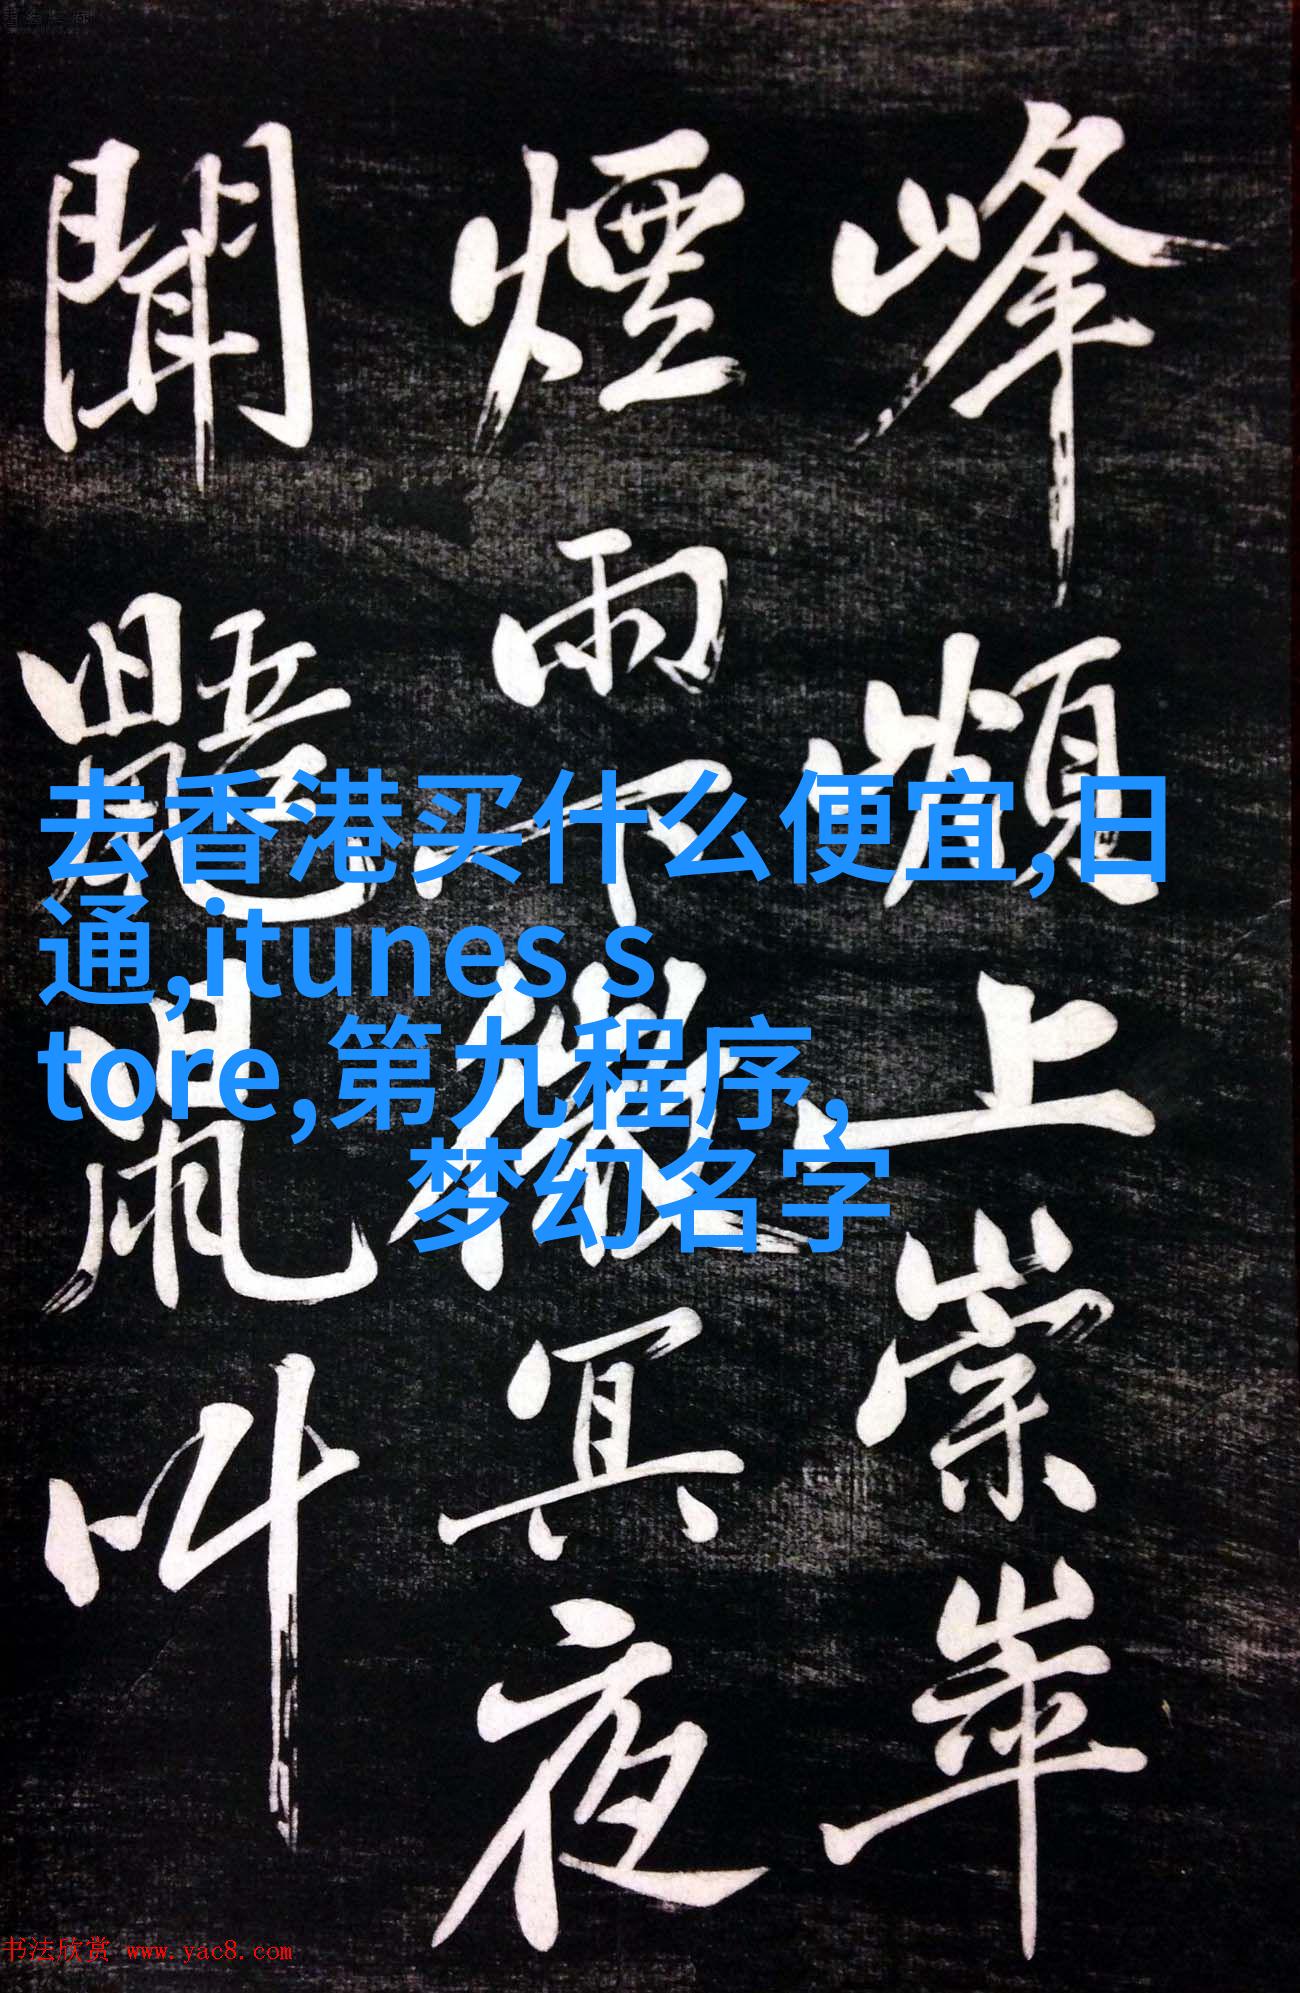 峰上崇崒
煙雨下微冥夜
聞鼯鼠叫
去香港买什么便宜,日
通,itunes s
tore,第九程序,
梦幻名字
书法欣赏 www.yac8.com